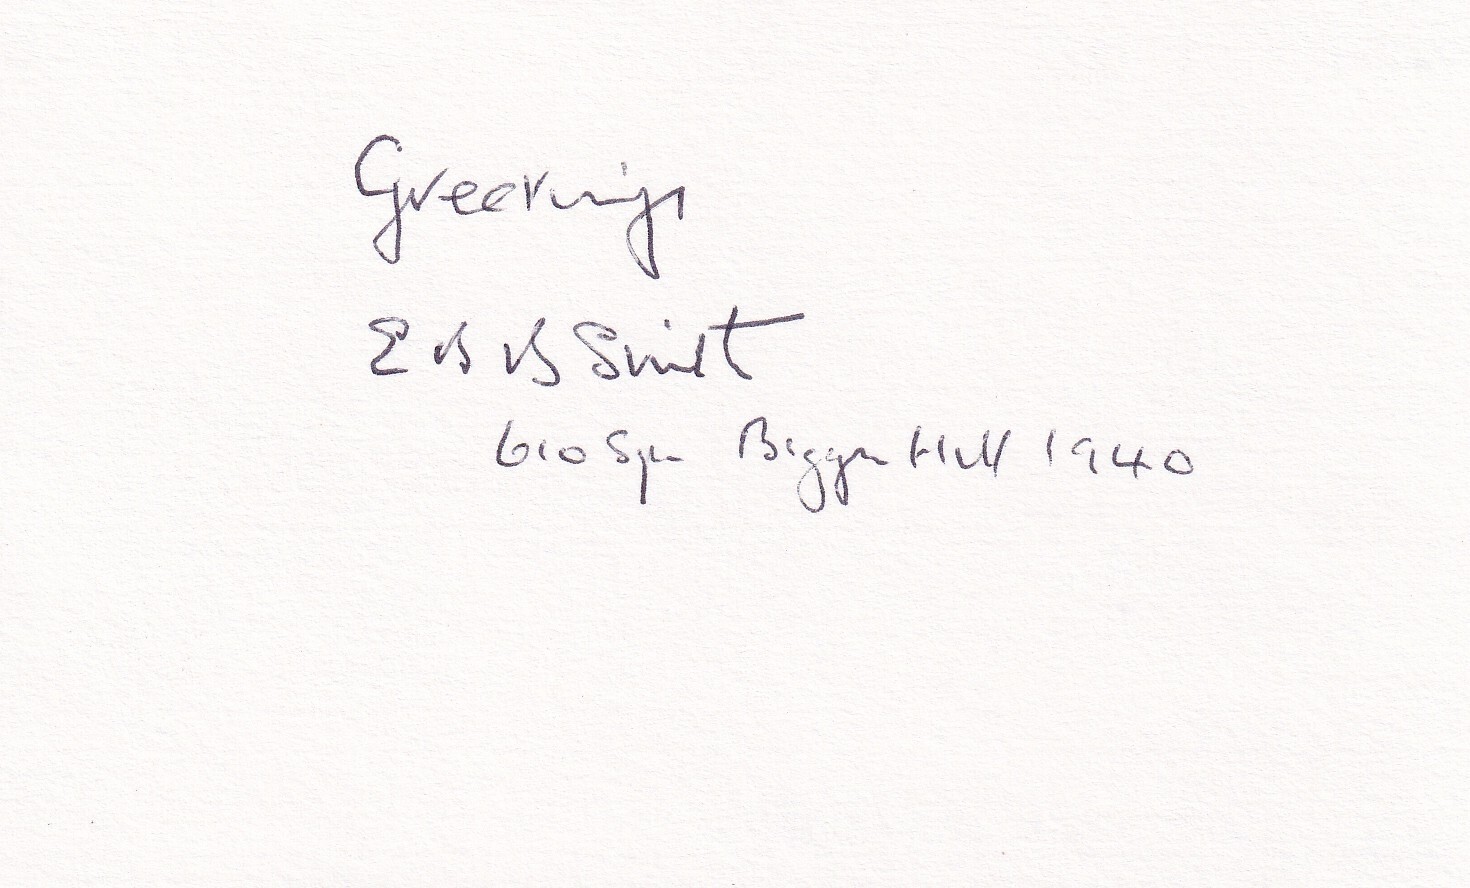 Greetings
E B B Smith
610 Sqn Biggin Hill 1940